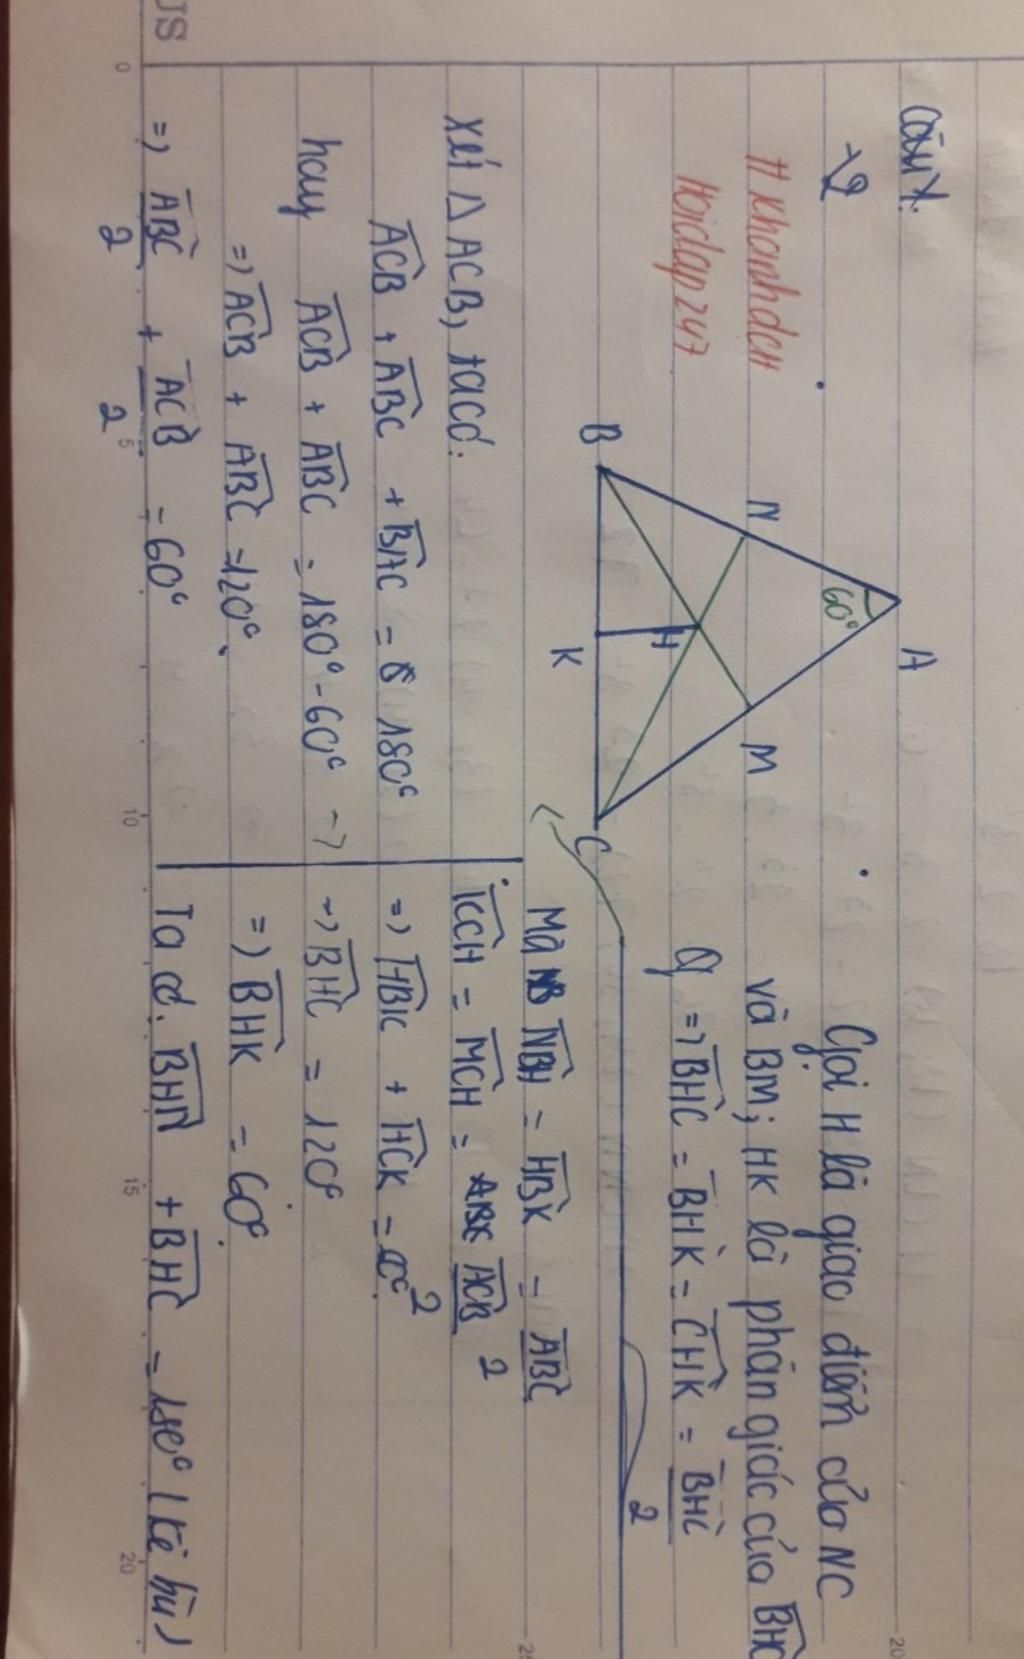 Câu 1:
→ 2
# Khanhdch
Hoidap247
A
60°
N
M
H
B
K
C
Gọi H là giao điểm của NC
và BM; HK là phân giác của BHC
=> BHC = BHK = CHK = BHC
2
xét △ ACB, tacó:
ACB + ABC + BAC = 180°
hay ACB + ABC = 180° - 60°
=> ACB + ABC = 120°.
=> ABC/2 + ACB/2 = 60°
Mà NBH = HBK = ABC
2
KCH = MCH = ACB
2
=> HBK + HCK =
=> BHC = 120°
=> BHK = 60°.
Ta có: BHN + BHC = 180° (kề bù)
JS
0
5
10
15
20
25
20